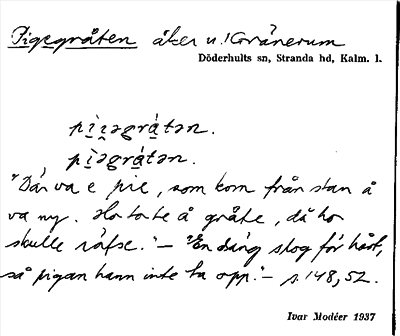 Pigegråten åker u. Kråkerum
Döderhults sn, Stranda hd, Kalm. l.
pìi̯əgrátən.
pìəgrátən.
"Där va e pie, som kom från stan å
va ny. Ho to te å gråte, då ho
skulle räfse." — "En dräng slog för hårt,
så pigan hann inte ta opp." — s. 148, 52.
Ivar Modéer 1937